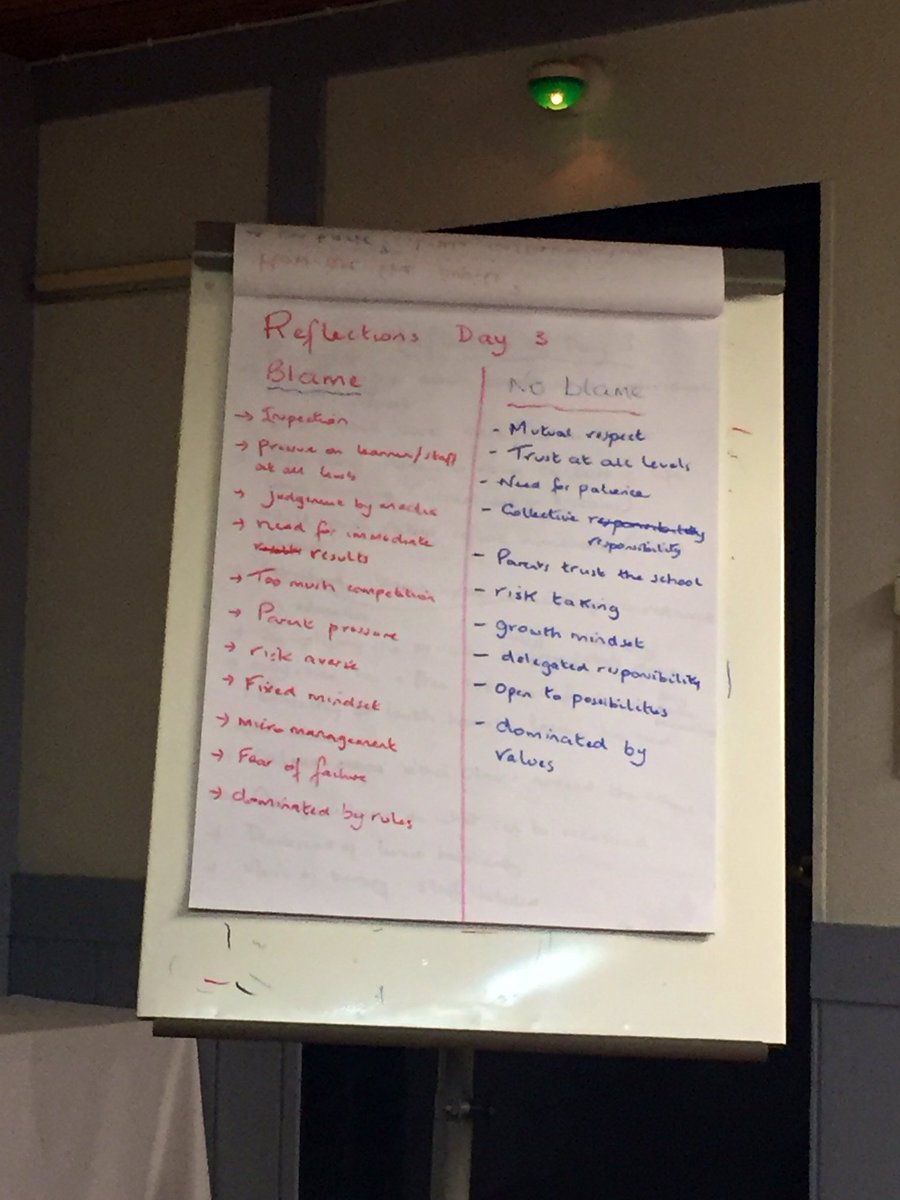 Reflections Day 3
Blame
→ Inspection
→ Pressure on learner/staff
at all levels
→ judgment by media
→ need for immediate
results results
→ Too much competition
→ Parent pressure
→ risk averse
→ Fixed mindset
→ micro management
→ Fear of failure
→ dominated by rules
No blame
- Mutual respect
- Trust at all levels
- Need for patience
- Collective responsibility
responsibility
- Parents trust the school
- risk taking
- growth mindset
- delegated responsibility
- Open to possibilities
- dominated by
values